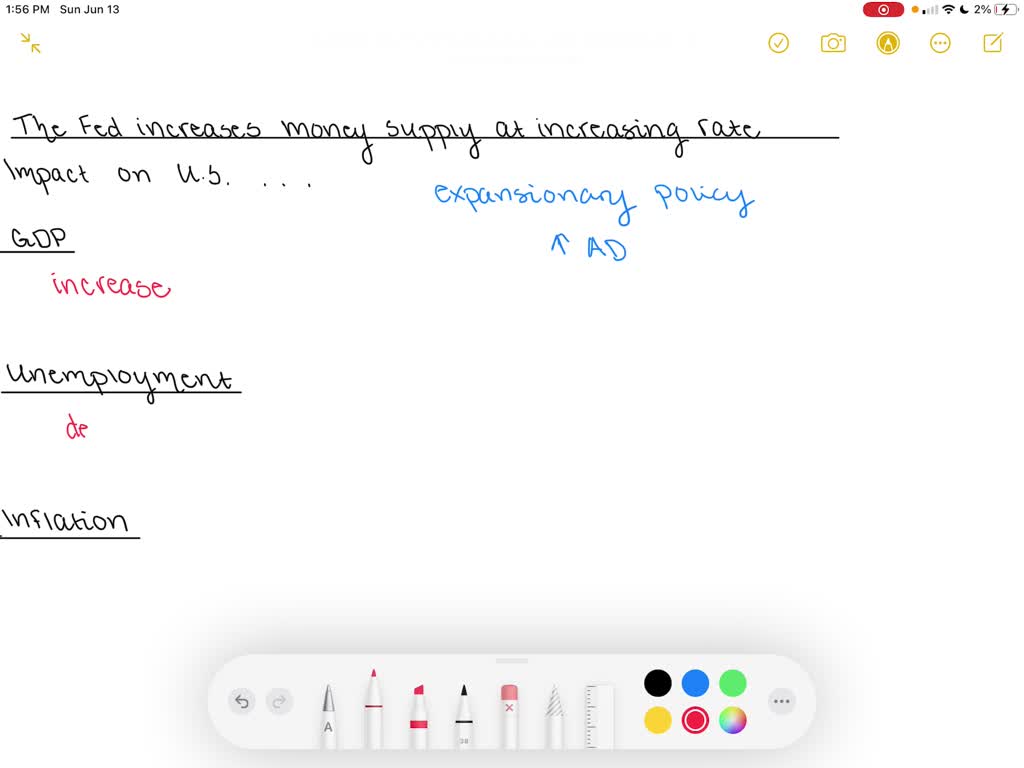 1:56 PM Sun Jun 13
2%
The Fed increases money supply at increasing rate
Impact on U.S. . . .
expansionary policy
GDP
↑ AD
increase
Unemployment
de
Inflation
A
38